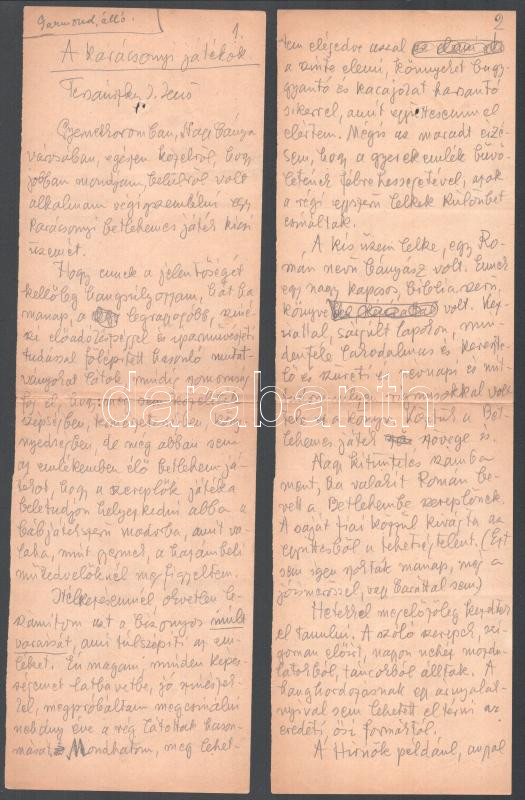 Garmond, álló.
1.
A karácsonyi játékok
Tersánszky J. Jenő
Gyerekkoromban, Nagybánya
városában, egészen közelről, hogy
jobban mondjam, belülről volt
alkalmam végigszemlélni egy
karácsonyi betlehemes játék kicsi
üzemét.
Hogy ennek a jelentőségét
kellőleg hangsúlyozzam, hát ha
manap, a legragyogóbb, színé-
szi előadóművészettel és iparművészeti
tudással fölépített hasonló mutat-
ványokat látok, mindig
el, hogy
szépségben,
nyedségben, de még abban sem
az emlékemben élő betlehem já-
tékot, hogy a szereplők játéka
beletudjon helyezkedni abba a
bábjátékszerű modorba, amit va-
laha, mint gyerek, a hazámbeli
műkedvelőknél megfigyeltem.
Nélkülözésemnél, okvetlen be-
számítom ezt a bizonyos múlt
varázsát, ami túlszépíti az em-
léket. Én magam, minden képes-
ségemet latbavetve, jó színészek-
kel, megpróbáltam megcsinálni
nehány éve a rég látottak hason-
mását. Mondhatom, meg lehet-
2
tem elégedve azzal
a szinte elemi, könnyeket bugy-
gyantó és kacajokat harsantó
sikerrel, amit együttesemmel
elértem. Mégis az maradt érzé-
sem, hogy a gyerekemlék bűvö-
letének félrebeszégetével, azok
a régi egyszerű lelkek különbet
csináltak.
A kis üzem lelke, egy Ro-
mán nevű bányász volt. Ennek
egy nagy kapcsos, Biblia szerű
könyve volt. Kéz-
írattal, sárgult lapokon, min-
denféle lakodalmas és keresz-
elő és szüreti és névnapi és
mókákkal volt
tele ez a könyv. Köztük a Bet-
lehemes játék szövege is.
Nagy kitüntetés számba
ment, ha valakit Román be-
vett a Betlehembe szereplőnek.
A saját fiai közül kivágta az
együttesből a tehetségtelent. (Ezt
sem igen szokták manap, még a
sem)
Hetekkel megelőzőleg kezdték
el tanulni. A szóló szerepek, szi-
goruan előírt, nagyon nehéz mozdu-
latokból, táncokból álltak. A
hanghordozásnak egy árnyalat-
nyival sem lehetett eltérni az
eredeti, ősi formától.
A Hírnök például, azzal
darabanth